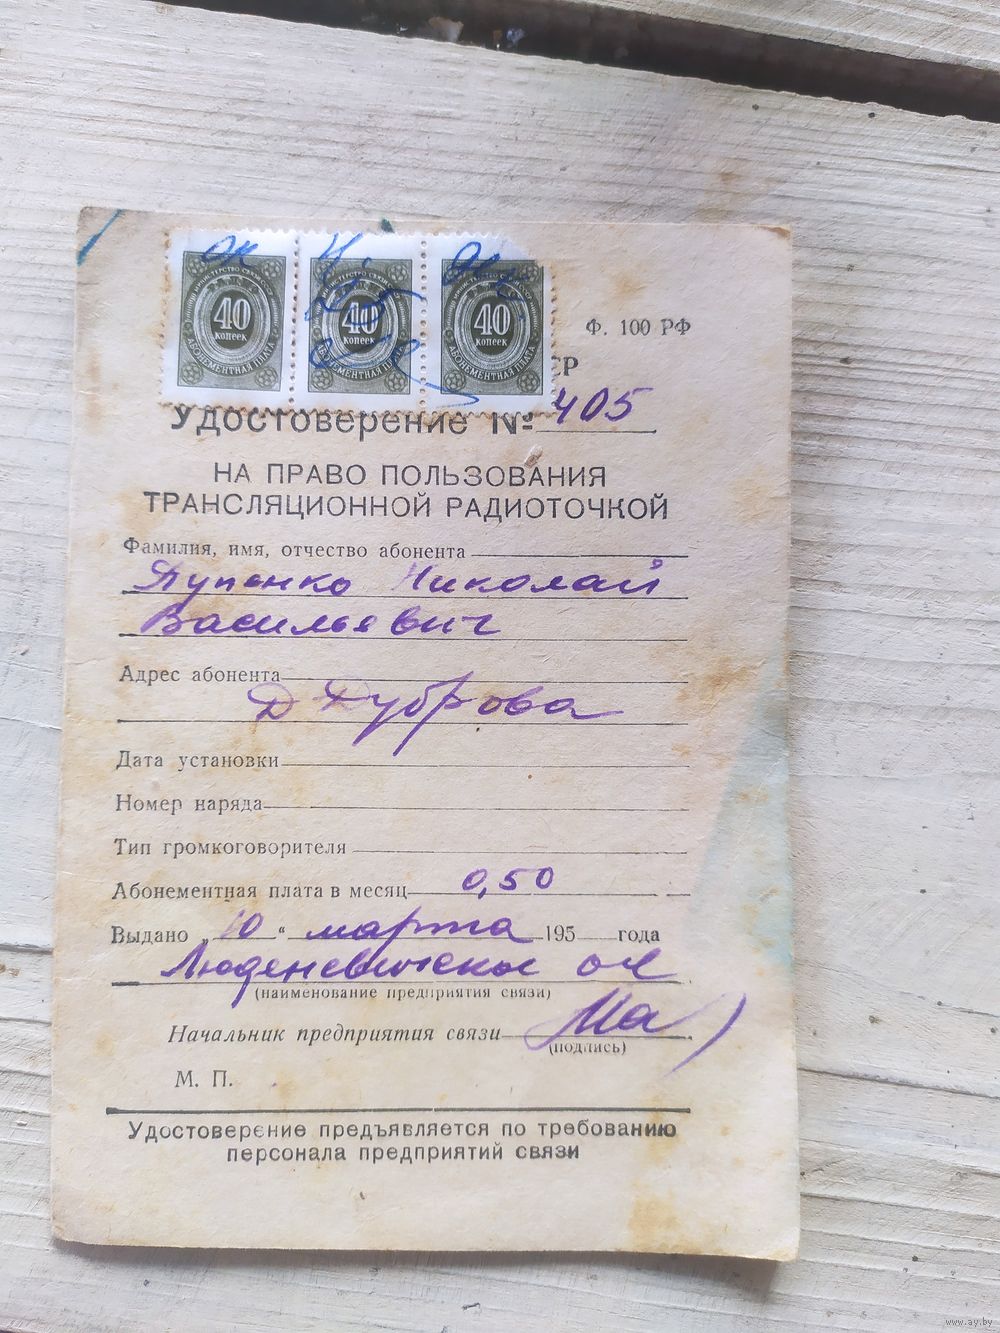 40
КОПЕЕК
АБОНЕМЕНТНАЯ ПЛАТА
40
КОПЕЕК
АБОНЕМЕНТНАЯ ПЛАТА
40
КОПЕЕК
АБОНЕМЕНТНАЯ ПЛАТА
Ф. 100 РФ
СР
Удостоверение № 405
НА ПРАВО ПОЛЬЗОВАНИЯ
ТРАНСЛЯЦИОННОЙ РАДИОТОЧКОЙ
Фамилия, имя, отчество абонента
Николай
Васильевич
Адрес абонента
Д Дуброва
Дата установки
Номер наряда
Тип громкоговорителя
Абонементная плата в месяц 0,50
Выдано „10“ марта 195 года
(наименование предприятия связи)
Начальник предприятия связи
(подпись)
М. П.
Удостоверение предъявляется по требованию
персонала предприятий связи
www.ay.by